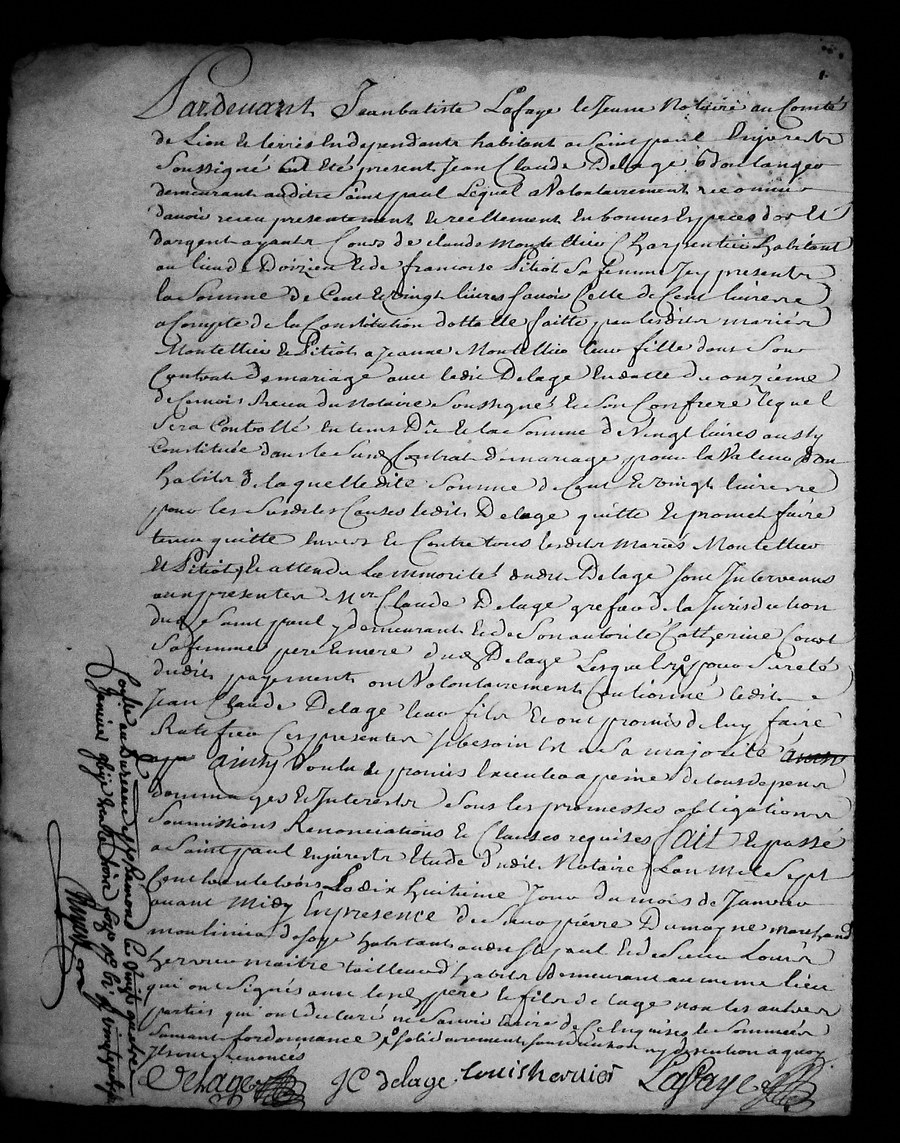 Pardevant Jeanbatiste Lafaye le Jeune Notaire au Comté
de Lion et terres Endependants habitant a Saint paul Enjarestz
Soussigné fut été present Jean Claude Delage Boulanger
demeurant audit Saint paul Lequel a Volontairement reconnu
davoir receu presentement et reellement En bonnes Especes dor et
dargent ayant Cours de Claude Montellier Charpentier habitant
au lieu de Doizieu et de francoise Pitiot Sa femme Jcy presents
la Somme de Cent et vingt livres Scavoir Celle de Cent livres
a Compte de la Constitution dottalle faitte par lesdits mariés
Montellier et Pitiot a Jeanne Montellier leur fille dans Son
Contrat de mariage avec ledit Delage En datte du onzieme
de Ce mois Receu du Notaire Soussigné et Son Confrere lequel
Sera Controllé En tems Du et la Somme de Vingt livres aussy
Constituée dans le Susd Contrat de mariage pour la Valeur dun
habit de laquelle dite Somme de Cent et vingt livres
pour les Susdites Causes ledit Delage quitte et promet faire
tenir quitte Envers et Contre tous lesdits Mariés Montellier
et Pitiot, et attendu la minorité dudit Delage Sont Intervenus
aux presentes Mre Claude Delage grefier de la Jurisdiction
dudt Saint paul y demeurant et de Son autorité Catherine Court
Sa femme pere et mere dud Delage Lesquels pour Sureté
dudit payement ont Volontairement Cautionné ledit
Jean Claude Delage leur fils Et ont promis de luy faire
Ratifier Ces presentes sy besoin Est a Sa majorité
Ainsy Voulu et promis Executer a peine de tous depens
dommages et Interests Sous les promesses obligations
Soumissions Renonciations et Clauses requises fait et passé
a Saint paul Enjarestz Etude dudit Notaire Lan Mil Sept
Cent trente trois Le dix huitieme Jour du mois de Janvier
avant Midy En presence de Sieur pierre Dumayne marchand
moulinier de Soye habitant aud St paul et de Sieur Louis
herrier maitre tailleur dhabits demeurant au meme lieu
qui ont Signés avec lesd pere et fils Delage non les autres
parties qui ont declaré ne Scavoir Ecrire de Ce Enquises et Sommées
Suivant lordonnance solidairement Sans division ny discution a quoy
Ils ont renoncés
Delage JC delage Louis herrier Lafaye
Janvier